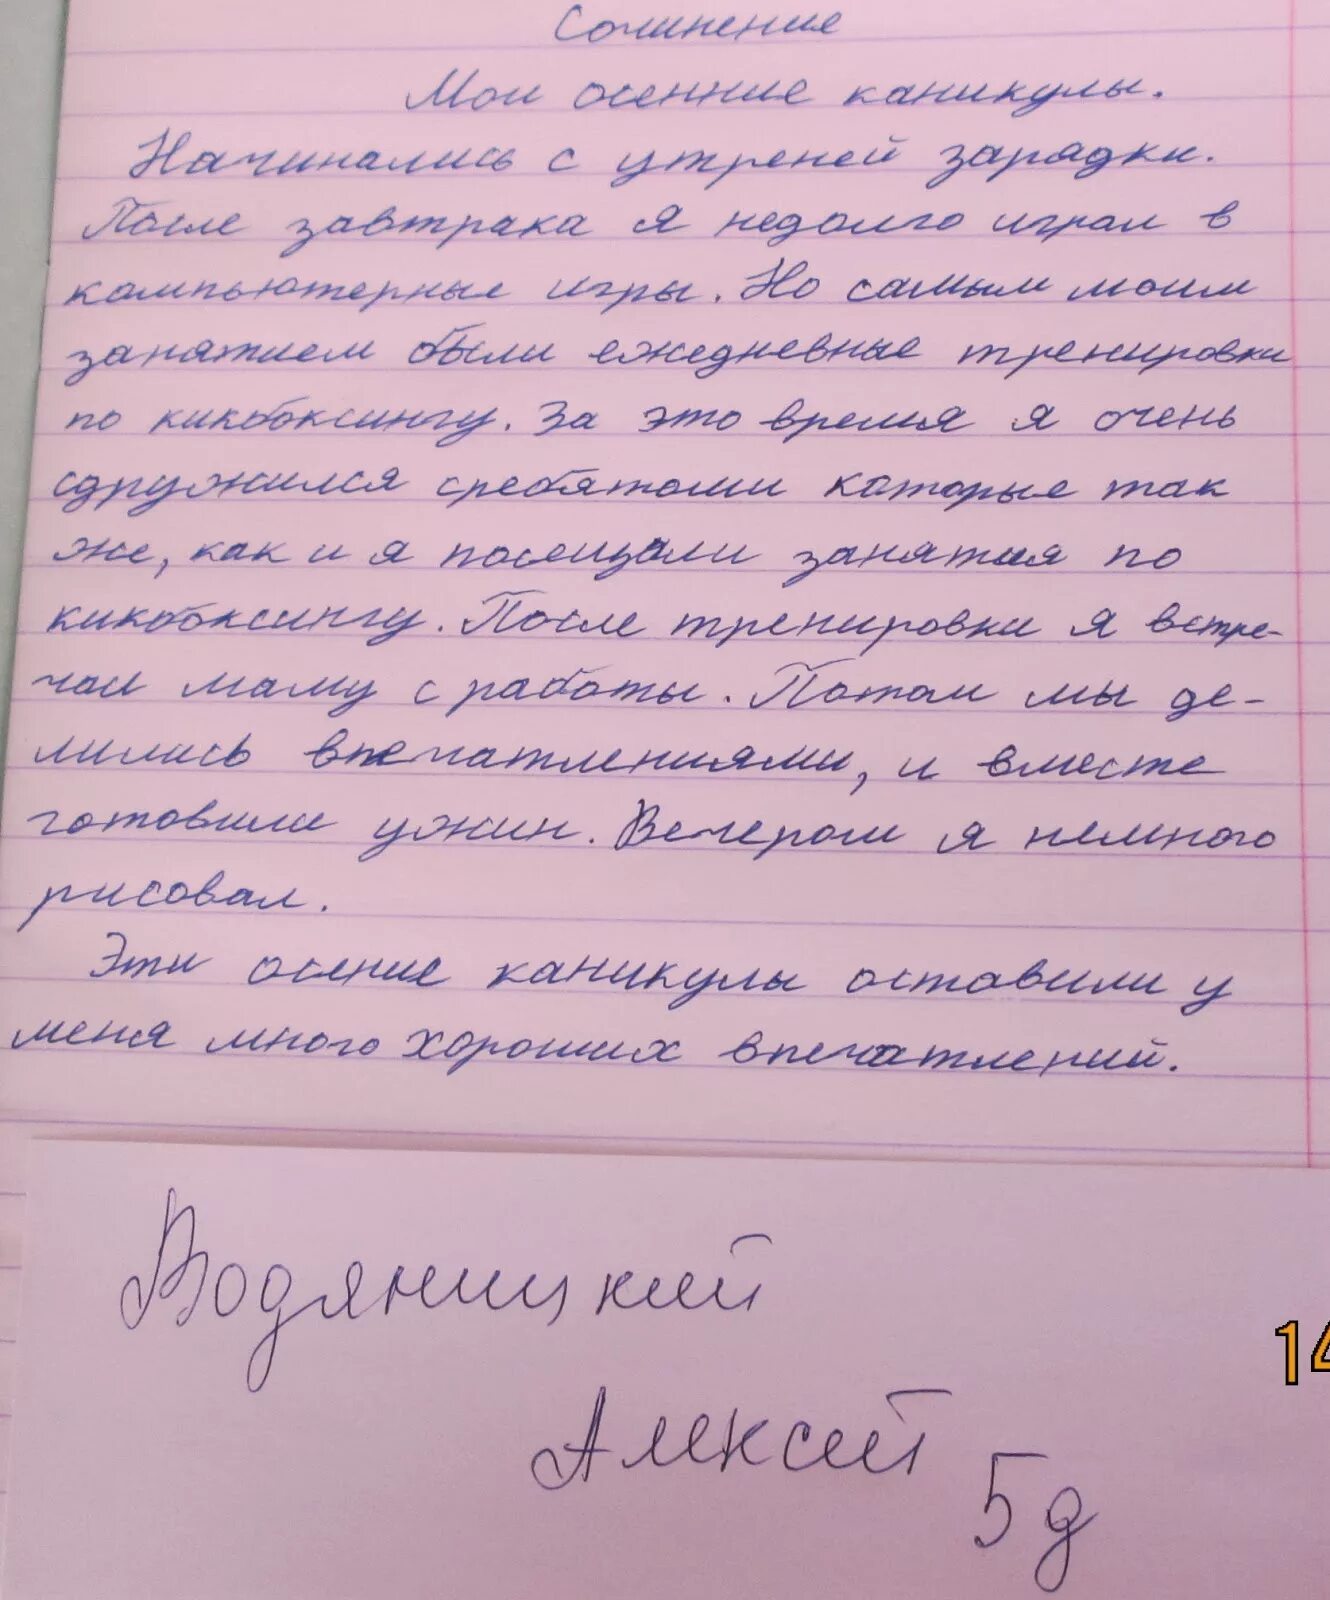 Сочинение
Мои осенние каникулы.
Начинались с утреней зарядки.
После завтрака я недолго играл в
компьютерные игры. Но самым моим
занятием были ежедневные тренировки
по кикбоксингу. За это время я очень
сдружился сребятами которые так
же, как и я посещали занятия по
кикбоксингу. После тренировки я встре-
чал маму с работы. Потом мы де-
лились впечатлениями, и вместе
готовили ужин. Вечером я немного
рисовал.
Эти осение каникулы оставили у
меня много хороших впечатлений.
Водяницкий
Алексей
5 д
14